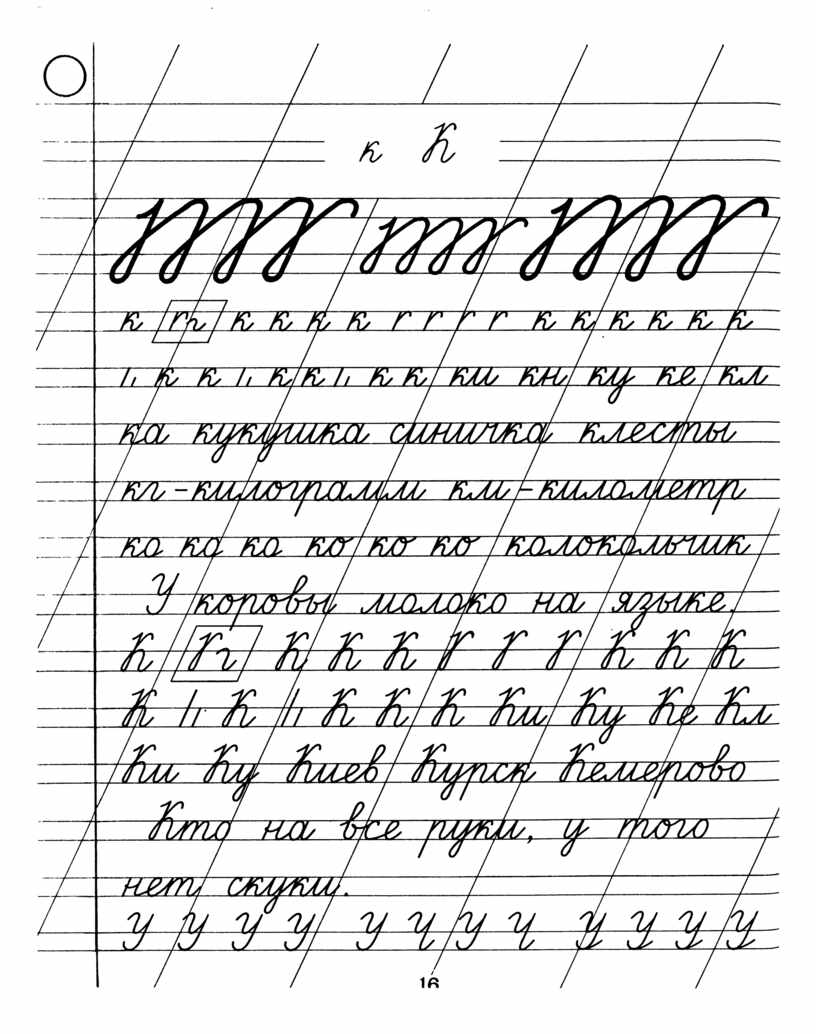 к К
к к к к к к к к к к к
к к к к к к ки кн ку ке кл
ка кукушка синичка клесты
кг - килограмм км - километр
ка ка ка ко ко ко колокольчик
У коровы молоко на языке.
К К К К К К К
К К К К К Ки Ку Ке Кл
Ки Ку Киев Курск Кемерово
Кто на все руки, у того
нет скуки.
У У У У У Ч У Ч У У У У
16